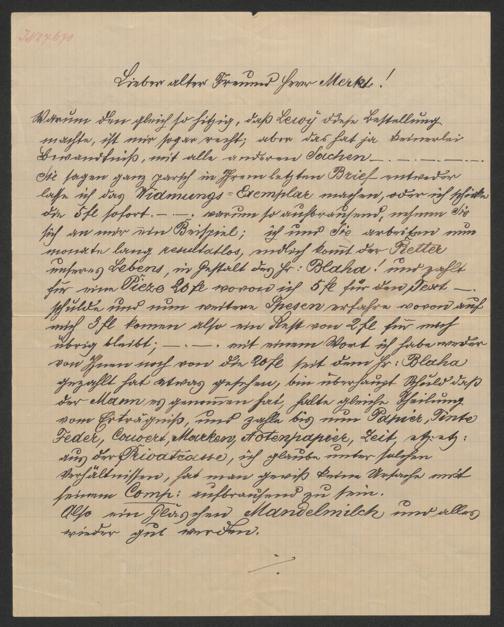 Lieber alter Freund Herr Merkt!
Warum den gleich so hitzig, daß Lewy diese Bestellung
machte, ist mir sogar recht; aber das hat ja keinerlei
Bewandtniß, mit alle anderen Sachen — . — . — . —
Sie sagen ganz barsch in Ihrem letzten Brief entweder
lasse ich das Widmungs=Exemplar machen, oder ich schicke
die 5 fl sofort. — . — . warum so aufbrausend, nehmen Sie
sich an mir ein Beispiel; ich und Sie arbeiten nun
monate lang resultatlos, endlich komt der Retter
unseres Lebens, in Gestalt des Hr: Blaha! und zahlt
für eine Pieze 20 fl wovon ich 5 fl für den Text — .
schulde und nun weitere Spesen erfahre wovon auf
mich 3 fl komen also ein Rest von 2 fl für mich
übrig bleibt; — . — . mit einem Wort ich habe weder
von Ihnen noch von die 20 fl seit dem Hr: Blaha
gezahlt hat etwas gesehen, bin überhaupt Schuld daß
der Mann es genomen hat, halte gleiche Theilung
vom Erträgniß, und zahle bis nun Papier, Tinte
Feder, Couvert, Marken, Notenpapier, Zeit, etz etz:
aus der Privatcasse, ich glaube unter solchen
Verhältnissen, hat man gewiß keine Ursache mit
seinem Comp: aufbrausend zu sein.
Also ein Gläschen Mandelmilch und alles
wieder gut werden.